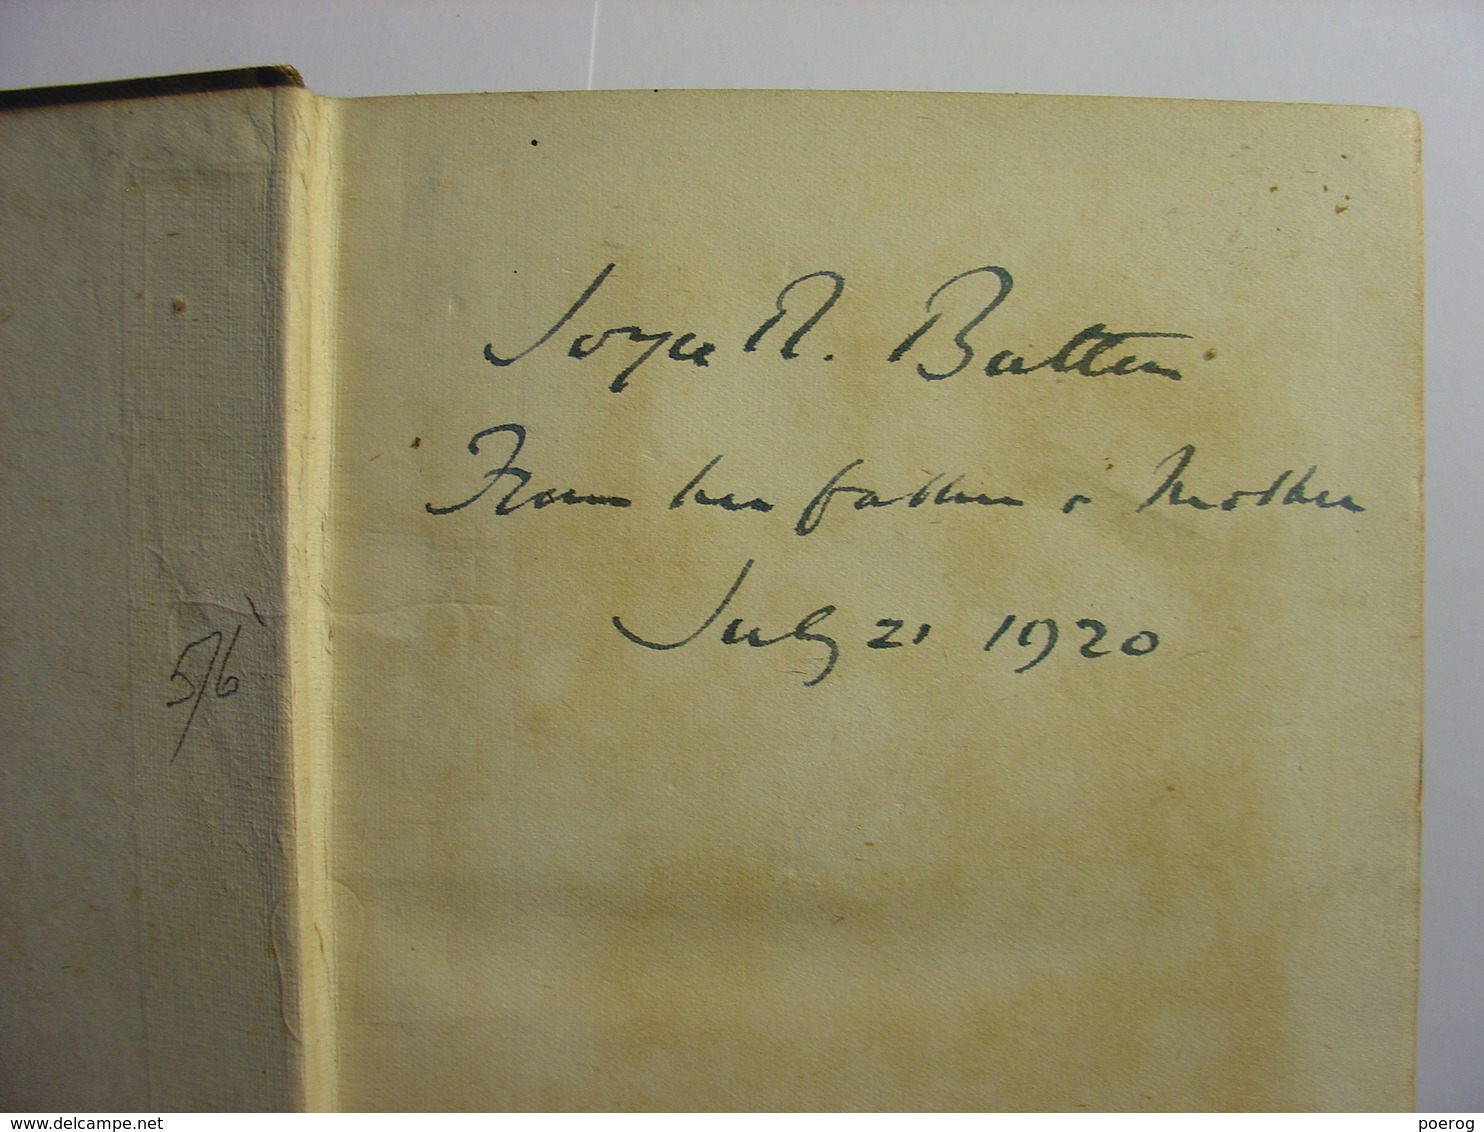 Joyce R. Batten
From her father & Mother
July 21 1920
5/6
poerog